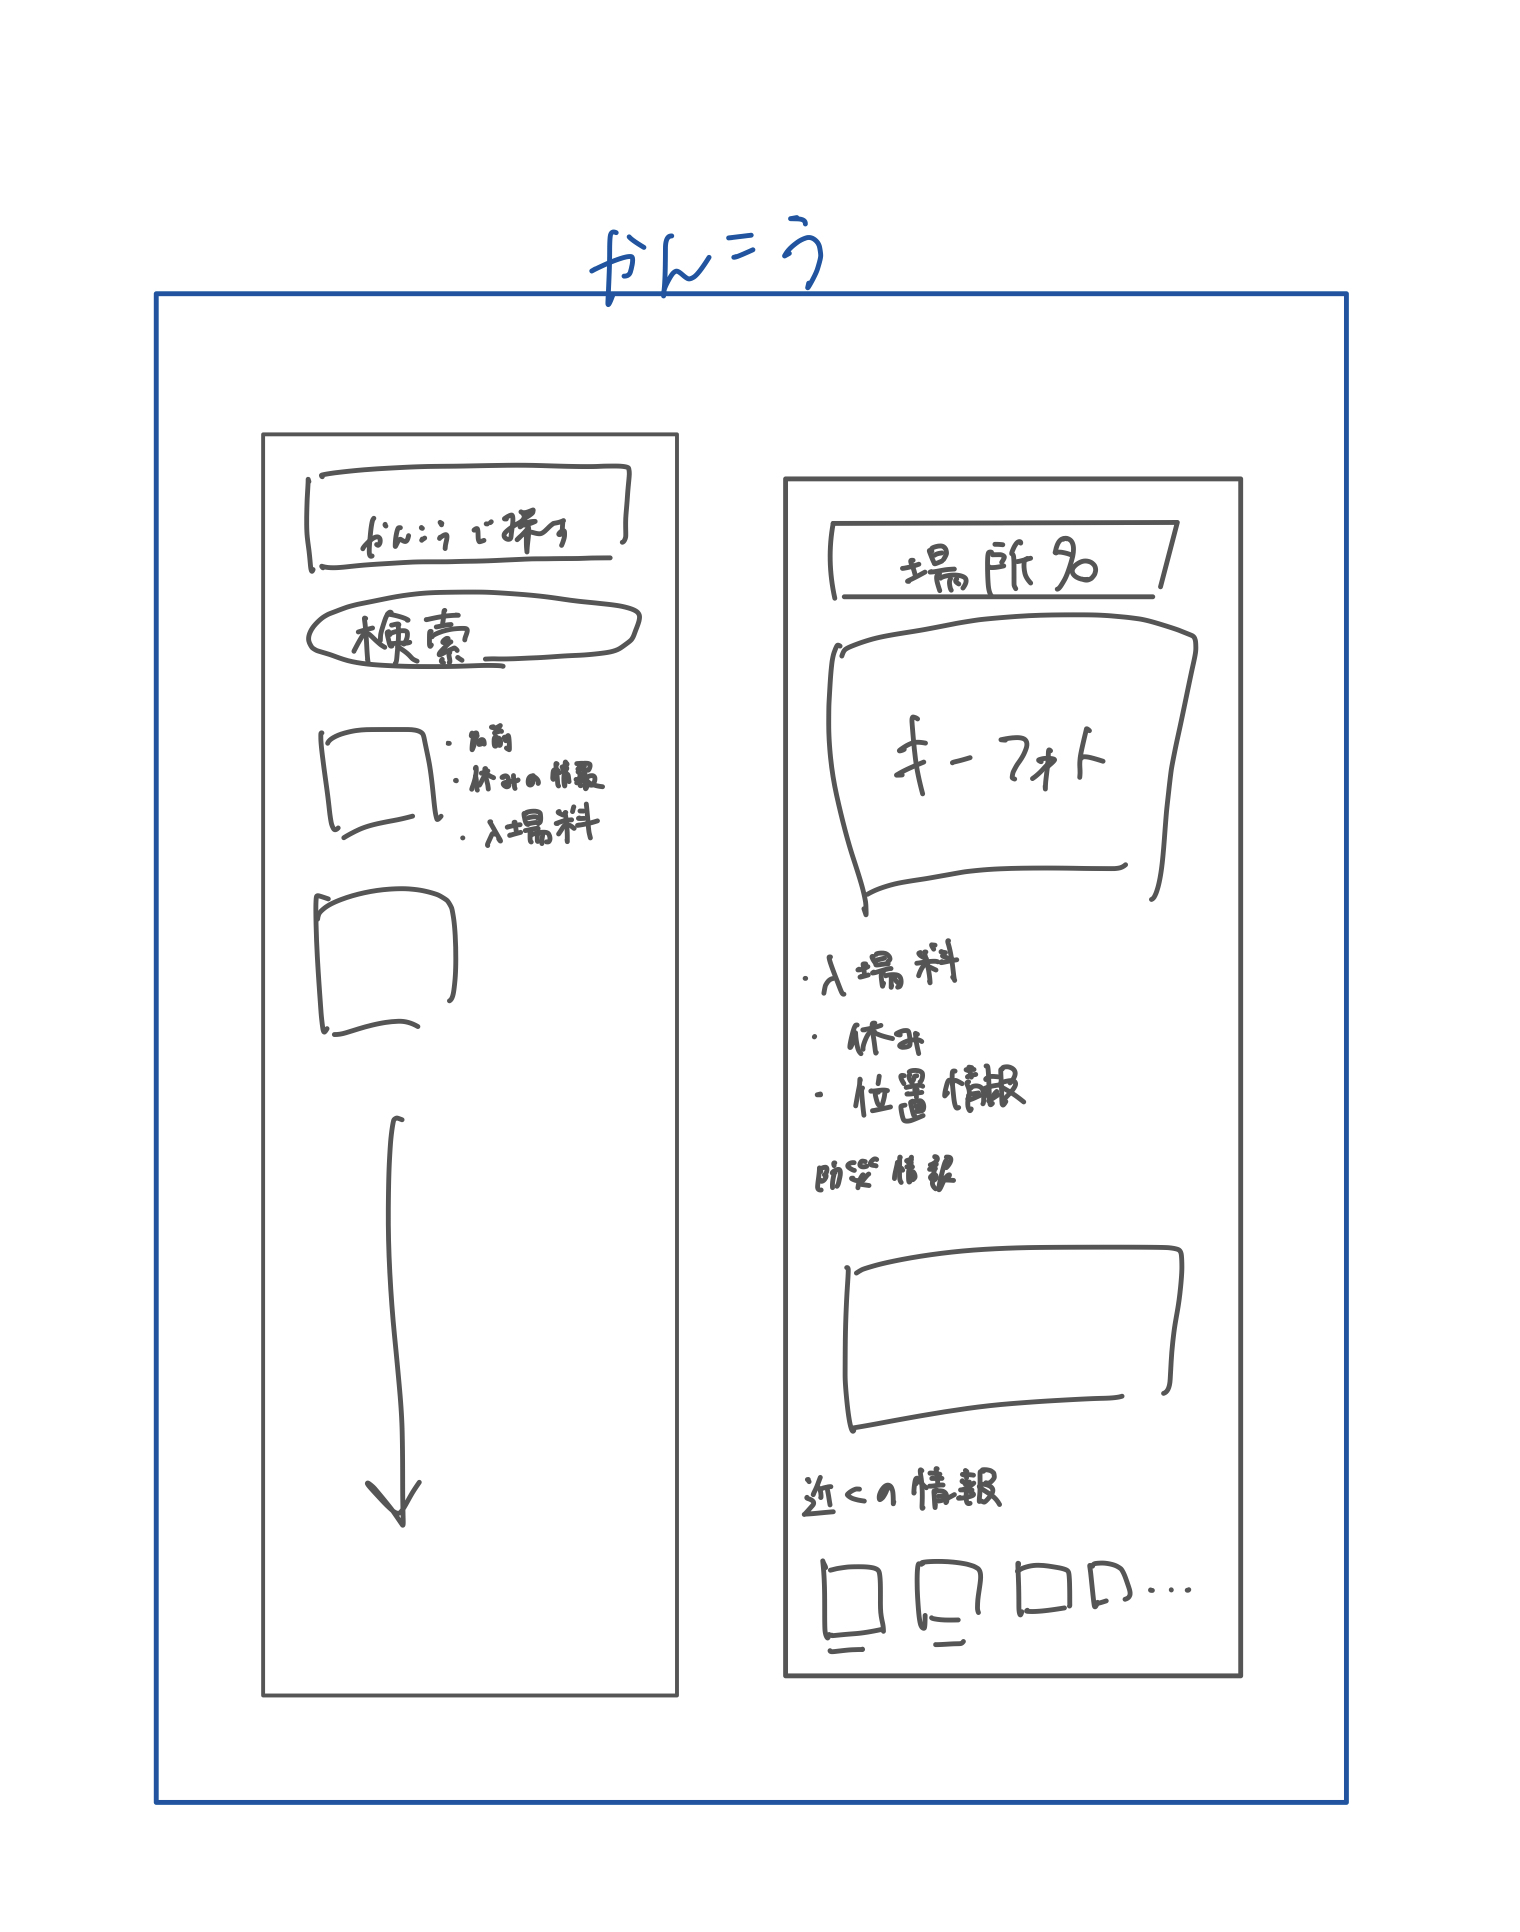 かんこう
かんこうで探す
検索
・休みの情報
・入場料
場所名
キーフォト
・入場料
・休み
・位置情報
防災情報
近くの情報
…